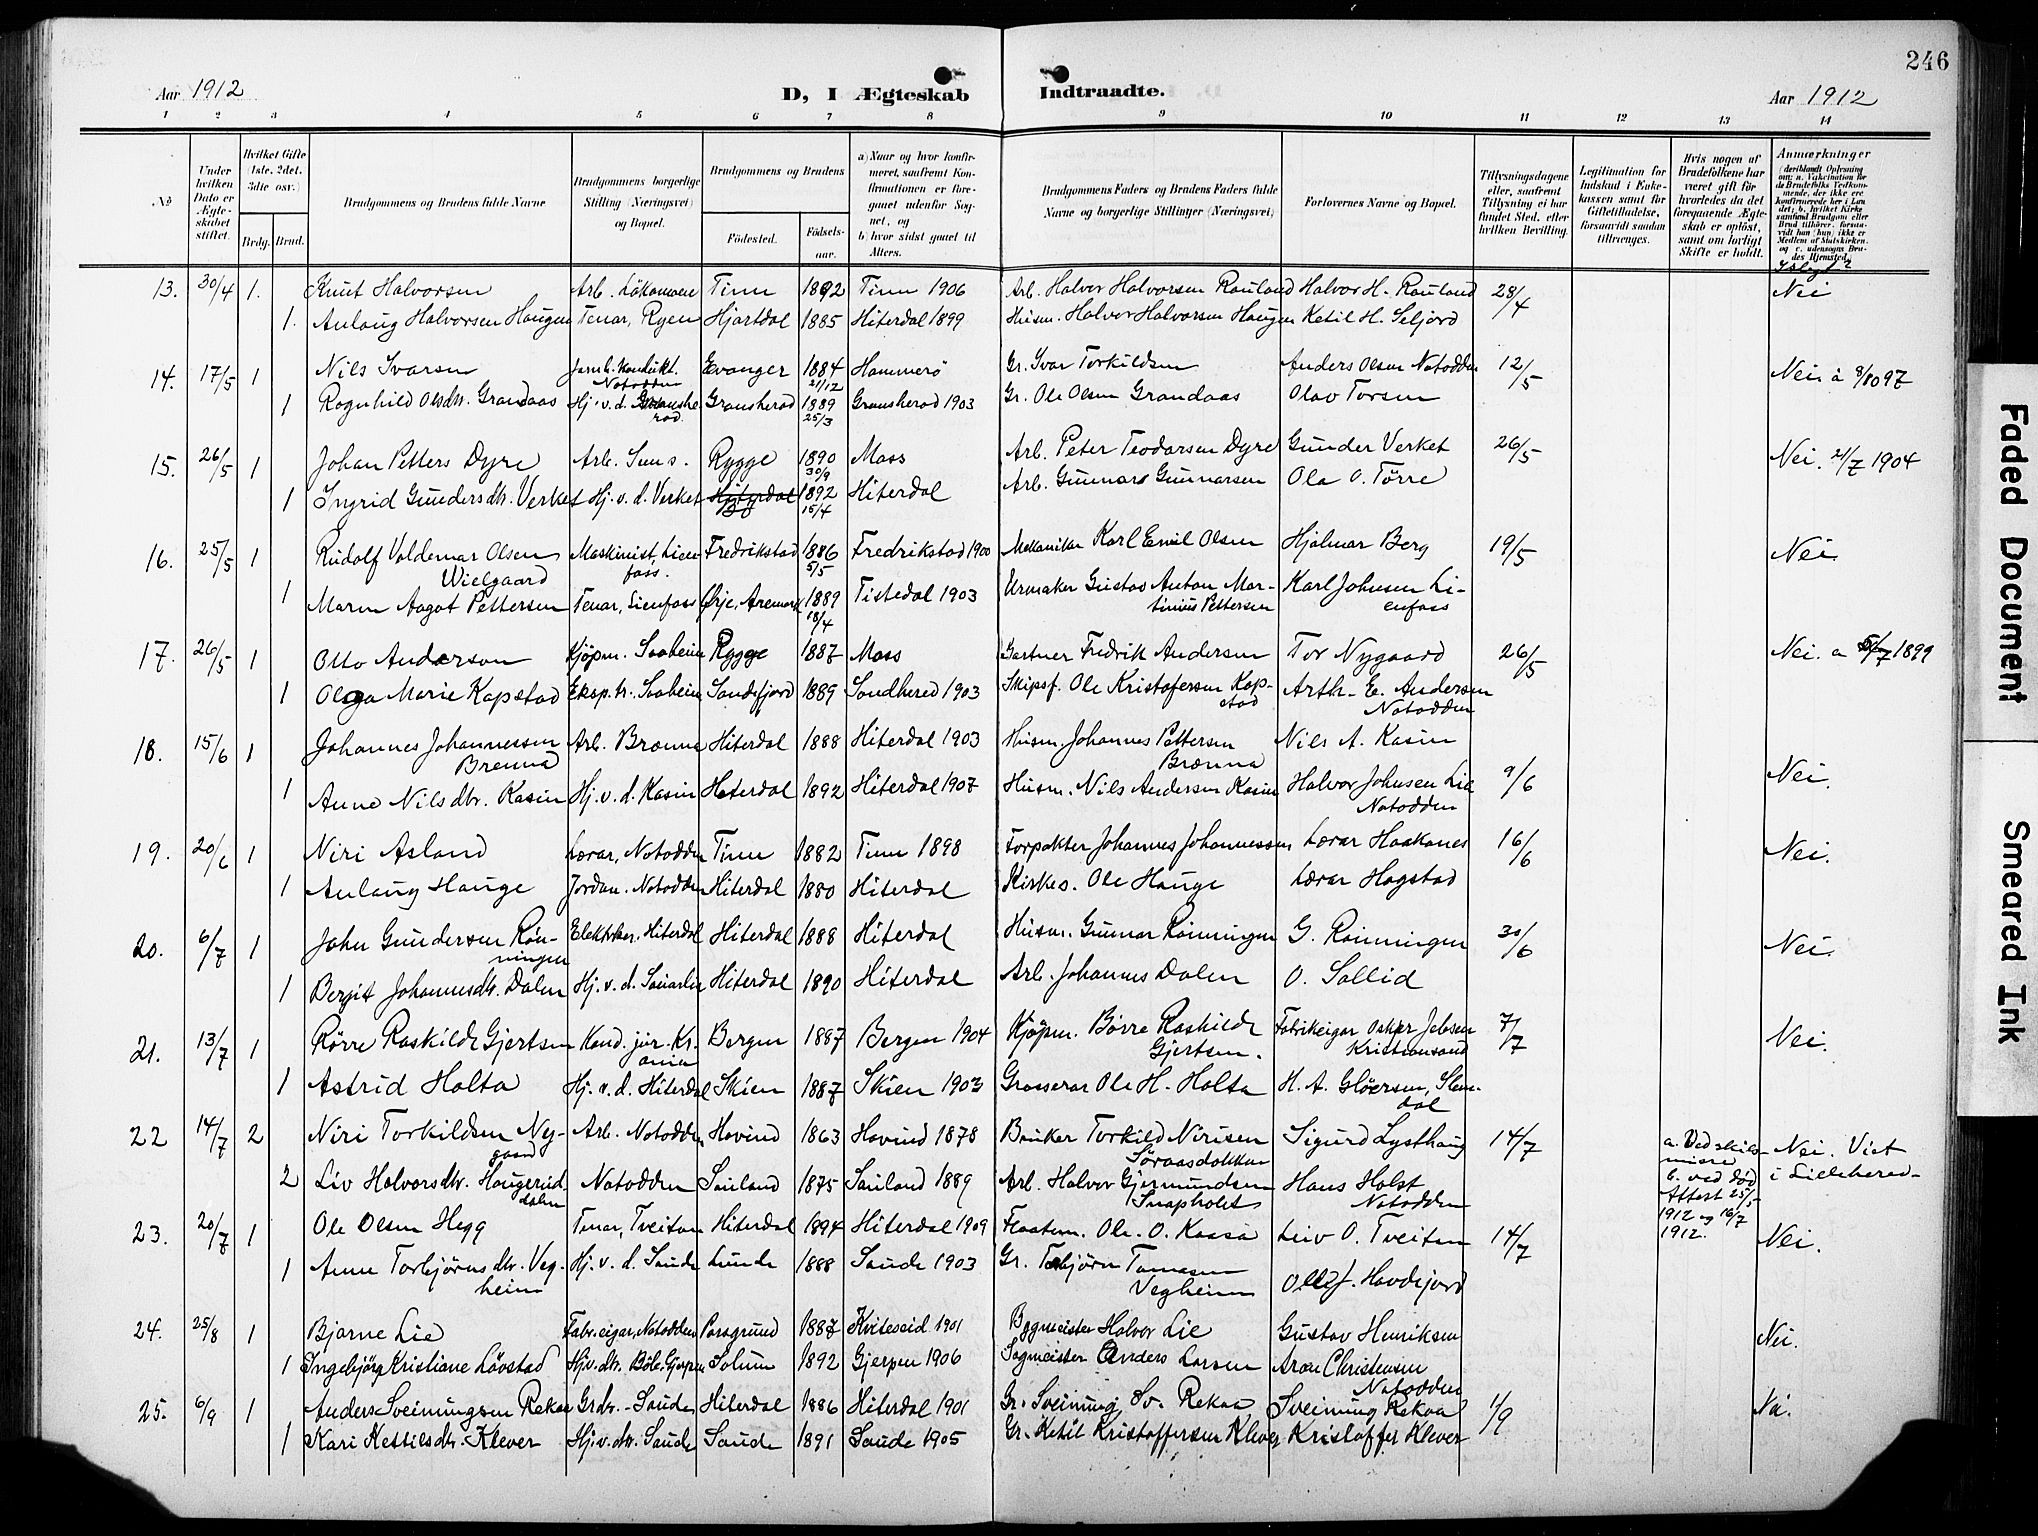 246
Aar 1912
D, I Ægteskab Indtraadte.
Aar 1912
1 2 3 4 5 6 7 8 9 10 11 12 13 14
No
Under hvilken Dato er Ægteskabet stiftet.
Hvilket Gifte (1ste, 2det, 3die osv.)
Brdg. Brud.
Brudgommens og Brudens fulde Navne
Brudgommens borgerlige Stilling (Næringsvei) og Bopæl.
Brudgommens og Brudens
Fødested. Fødselsaar.
a) Naar og hvor konfirmeret, saafremt Konfirmationen er foregaaet udenfor Sognet, og b) hvor sidst gaaet til Alters.
Brudgommens Faders og Brudens Faders fulde Navne og borgerlige Stillinger (Næringsvei)
Forlovernes Navne og Bopæl.
Tillysningsdagene eller, saafremt Tillysning ei har fundet Sted, efter hvilken Bevilling.
Legitimation for Indskud i Enkekassen samt for Giftetilladelse, forsaavidt saadan tiltrænges.
Hvis nogen af Brudefolkene har været gift før hvorledes da det foregaaende Ægteskab er opløst, samt om lovligt Skifte er holdt.
Anmærkninger
13. 30/4 1. Knut Halvorsen Arb. Tinn 1892 Tinn 1906 Arb. Halvor Halvorsen Rauland Halvor H. Rauland 28/4 Nei
1. Aulaug Halvorsen Haugen Tenar, Ryen Hjartdal 1885 Hiterdal 1899 Husm. Halvor Halvorsen Haugen Ketil H. Seljord
14. 17/5 1 Nils Ivarsen Notodden Evanger 1884 21/12 Hammerö Gr. Ivar Torkildsen Anders Olsen Notodden 12/5 Nei. a 3/10 97
1 Ragnhild Olsdtr. Grandaas Hj. v. d. Gransherad Gransherad 1889 25/3 Gransherad 1903 Gr. Ole Olsen Grandaas Olav Torsen
15. 26/5 1 Johan Petters Dyre Arb. Rygge 1890 30/9 Moss Arb. Peter Teodorsen Dyre Gunder Verket 26/5 Nei. 21/7 1904
1 Ingrid Gundersdtr. Verket Hj. v. d. Verket Hiterdal Bö 1892 15/4 Hiterdal Arb. Gunnar Gunnarsen Ola O. Törre
16. 25/5 1 Rudolf Valdemar Olsen Wielgaard Maskinist, Lienfoss. Fredrikstad 1886 5/5 Fredrikstad 1900 Mekaniker Karl Emil Olsen Hjalmar Berg 19/5 Nei.
1 Maren Aagot Pettersen Tenar, Lienfoss Ørje, Aremark 1889 18/4 Tistedal 1903 Urmaker Gustav Anton Martinius Pettersen Karl Johnsen Lienfoss
17. 26/5 1 Otto Anderson Kjöpm. Saaheim Rygge 1887 Moss Gartner Fredrik Andersen Tor Nygaard 26/5 Nei. a 5/7 1899
1 Olga Marie Kapstad Eksp. tr. Saaheim Sandefjord 1889 Sandherad 1903 Skipsf. Ole Kristofersen Kapstad Arth. E. Andersen Notodden
18. 15/6 1 Johannes Johannessen Brenna Arb. Brenna Hiterdal 1888 Hiterdal 1903 Husm. Johannes Pettersen Brænna Nils A. Kasin 9/6 Nei.
1 Anne Nilsdtr. Kasin Hj. v. d. Kasin Hiterdal 1892 Hiterdal 1907 Husm. Nils Andersen Kasin Halvor Johnsen Lie Notodden
19. 20/6 1 Niri Asland Lærar, Notodden Tinn 1882 Tinn 1898 Forpakter Johannes Johannessen Lærar Haakanes 16/6 Nei.
1 Aulaug Hauge Jordm. Notodden Hiterdal 1880 Hiterdal Kirkes. Ole Hauge Lærar Hagstad
20. 6/7 1 John Gundersen Rönningen Elektriker. Hiterdal Hiterdal 1888 Hiterdal Husm. Gunnar Rönningen G. Rönningen 30/6 Nei.
1 Bergit Johannesdtr. Dalen Hj. v. d. Hiterdal 1890 Hiterdal Arb. Johannes Dalen O. Sollid
21. 13/7 1 Börre Roskilde Gjertsen Kand. jur. Kr.ania Bergen 1887 Bergen 1904 Kjöpm. Börre Roskilde Gjertsen. Fabrikeigar Oskar Jebsen Kristiansand 7/7 Nei.
1 Astrid Holta Hj. v. d. Hiterdal Skien 1887 Skien 1903 Grosserar Ole H. Holta H. A. Glöersen,
22 14/7 2 Niri Torkildsen Nygaard Arb. Notodden Hovind 1863 Hovind 1878 Torkild Nirisen Söraasdokken Sigurd Lysthaug 14/7 a. Ved skilsmisse b. ved död Attest 25/5 1912 og 16/7 1912. Nei. Viet i Lilleherad.
2 Liv Halvorsdtr. Haugeriddalen Notodden Sauland 1875 Sauland 1889 Arb. Halvor Gjermundsen Hans Holst Notodden
23. 20/7 1 Ole Olsen Hegg Tenar, Tveitan Hiterdal 1894 Hiterdal 1909 Ole. O. Kaasa Leiv O. Tveiten 14/7 Nei.
1 Anne Torbjörnsdtr. Vegheim Hj. v. d. Saude Lunde 1888 Saude 1903 Gr. Torbjörn Tomasen Vegheim
24. 25/8 1 Bjarne Lie Fabr.eigar, Notodden Porsgrund 1887 Kviteseid 1901 Bygmeister Halvor Lie Gustav Henriksen Nei.
1 Ingebjörg Kristiane Lövstad Hj. v. dtr. Böle, Gjerpen Solum 1892 Gjerpen 1906 Sagmeister Anders Larsen Aron Christensen Notodden
25. 6/9 1 Anders Sveinungsen Rekaa Saude Hiterdal 1886 Hiterdal 1901 Gr. Sveinung Sv. Rekaa Sveinung Rekaa 1/9 Nei.
1 Kari Kettilsdtr. Klever Hj. v. dtr. Saude Saude 1891 Saude 1905 Gr. Ketil Kristoffersen Klever Kristoffer Klever
Faded Document
Smeared Ink